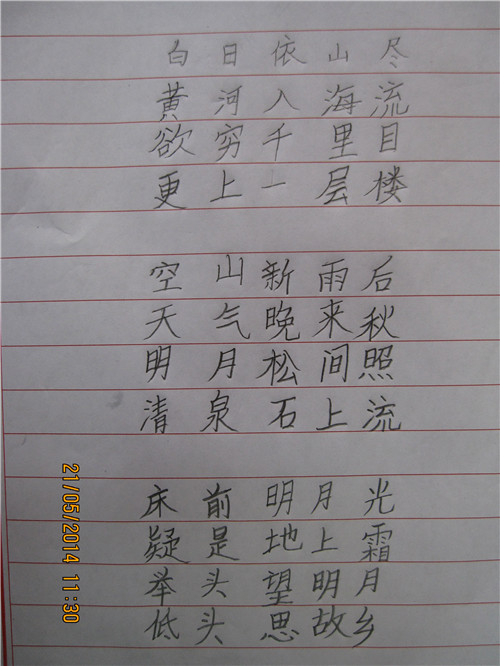 白日依山尽
黄河入海流
欲穷千里目
更上一层楼
空山新雨后
天气晚来秋
明月松间照
清泉石上流
床前明月光
疑是地上霜
举头望明月
低头思故乡
21/05/2014 11:30